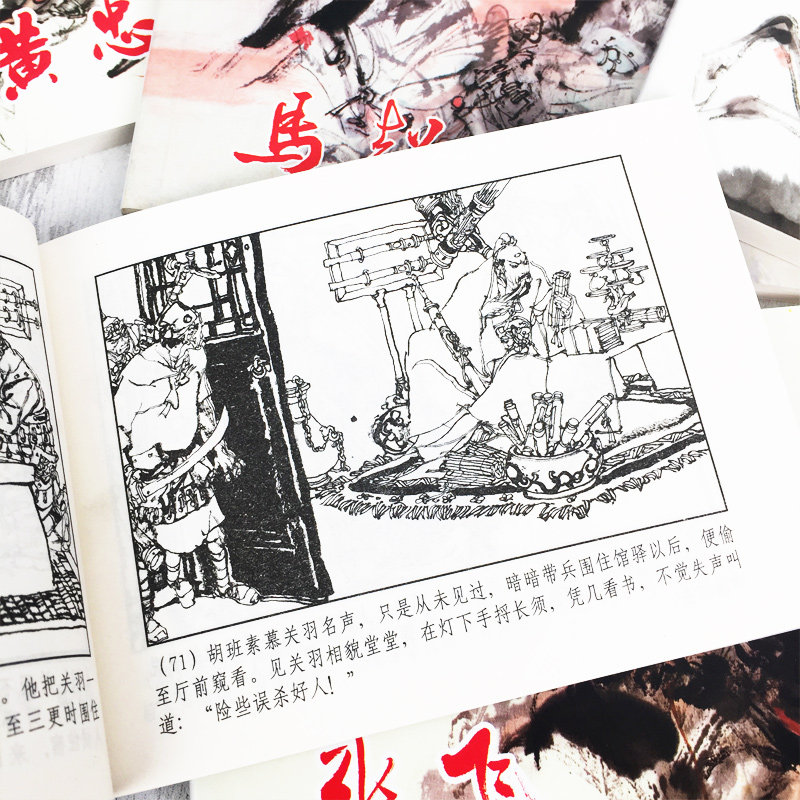 黄忠
馬超
(71) 胡班素慕关羽名声，只是从未见过，暗暗带兵围住馆驿以后，便偷
至厅前窥看。见关羽相貌堂堂，在灯下手捋长须，凭几看书，不觉失声叫
道：“险些误杀好人！”
。他把关羽一
至三更时围住
张飞